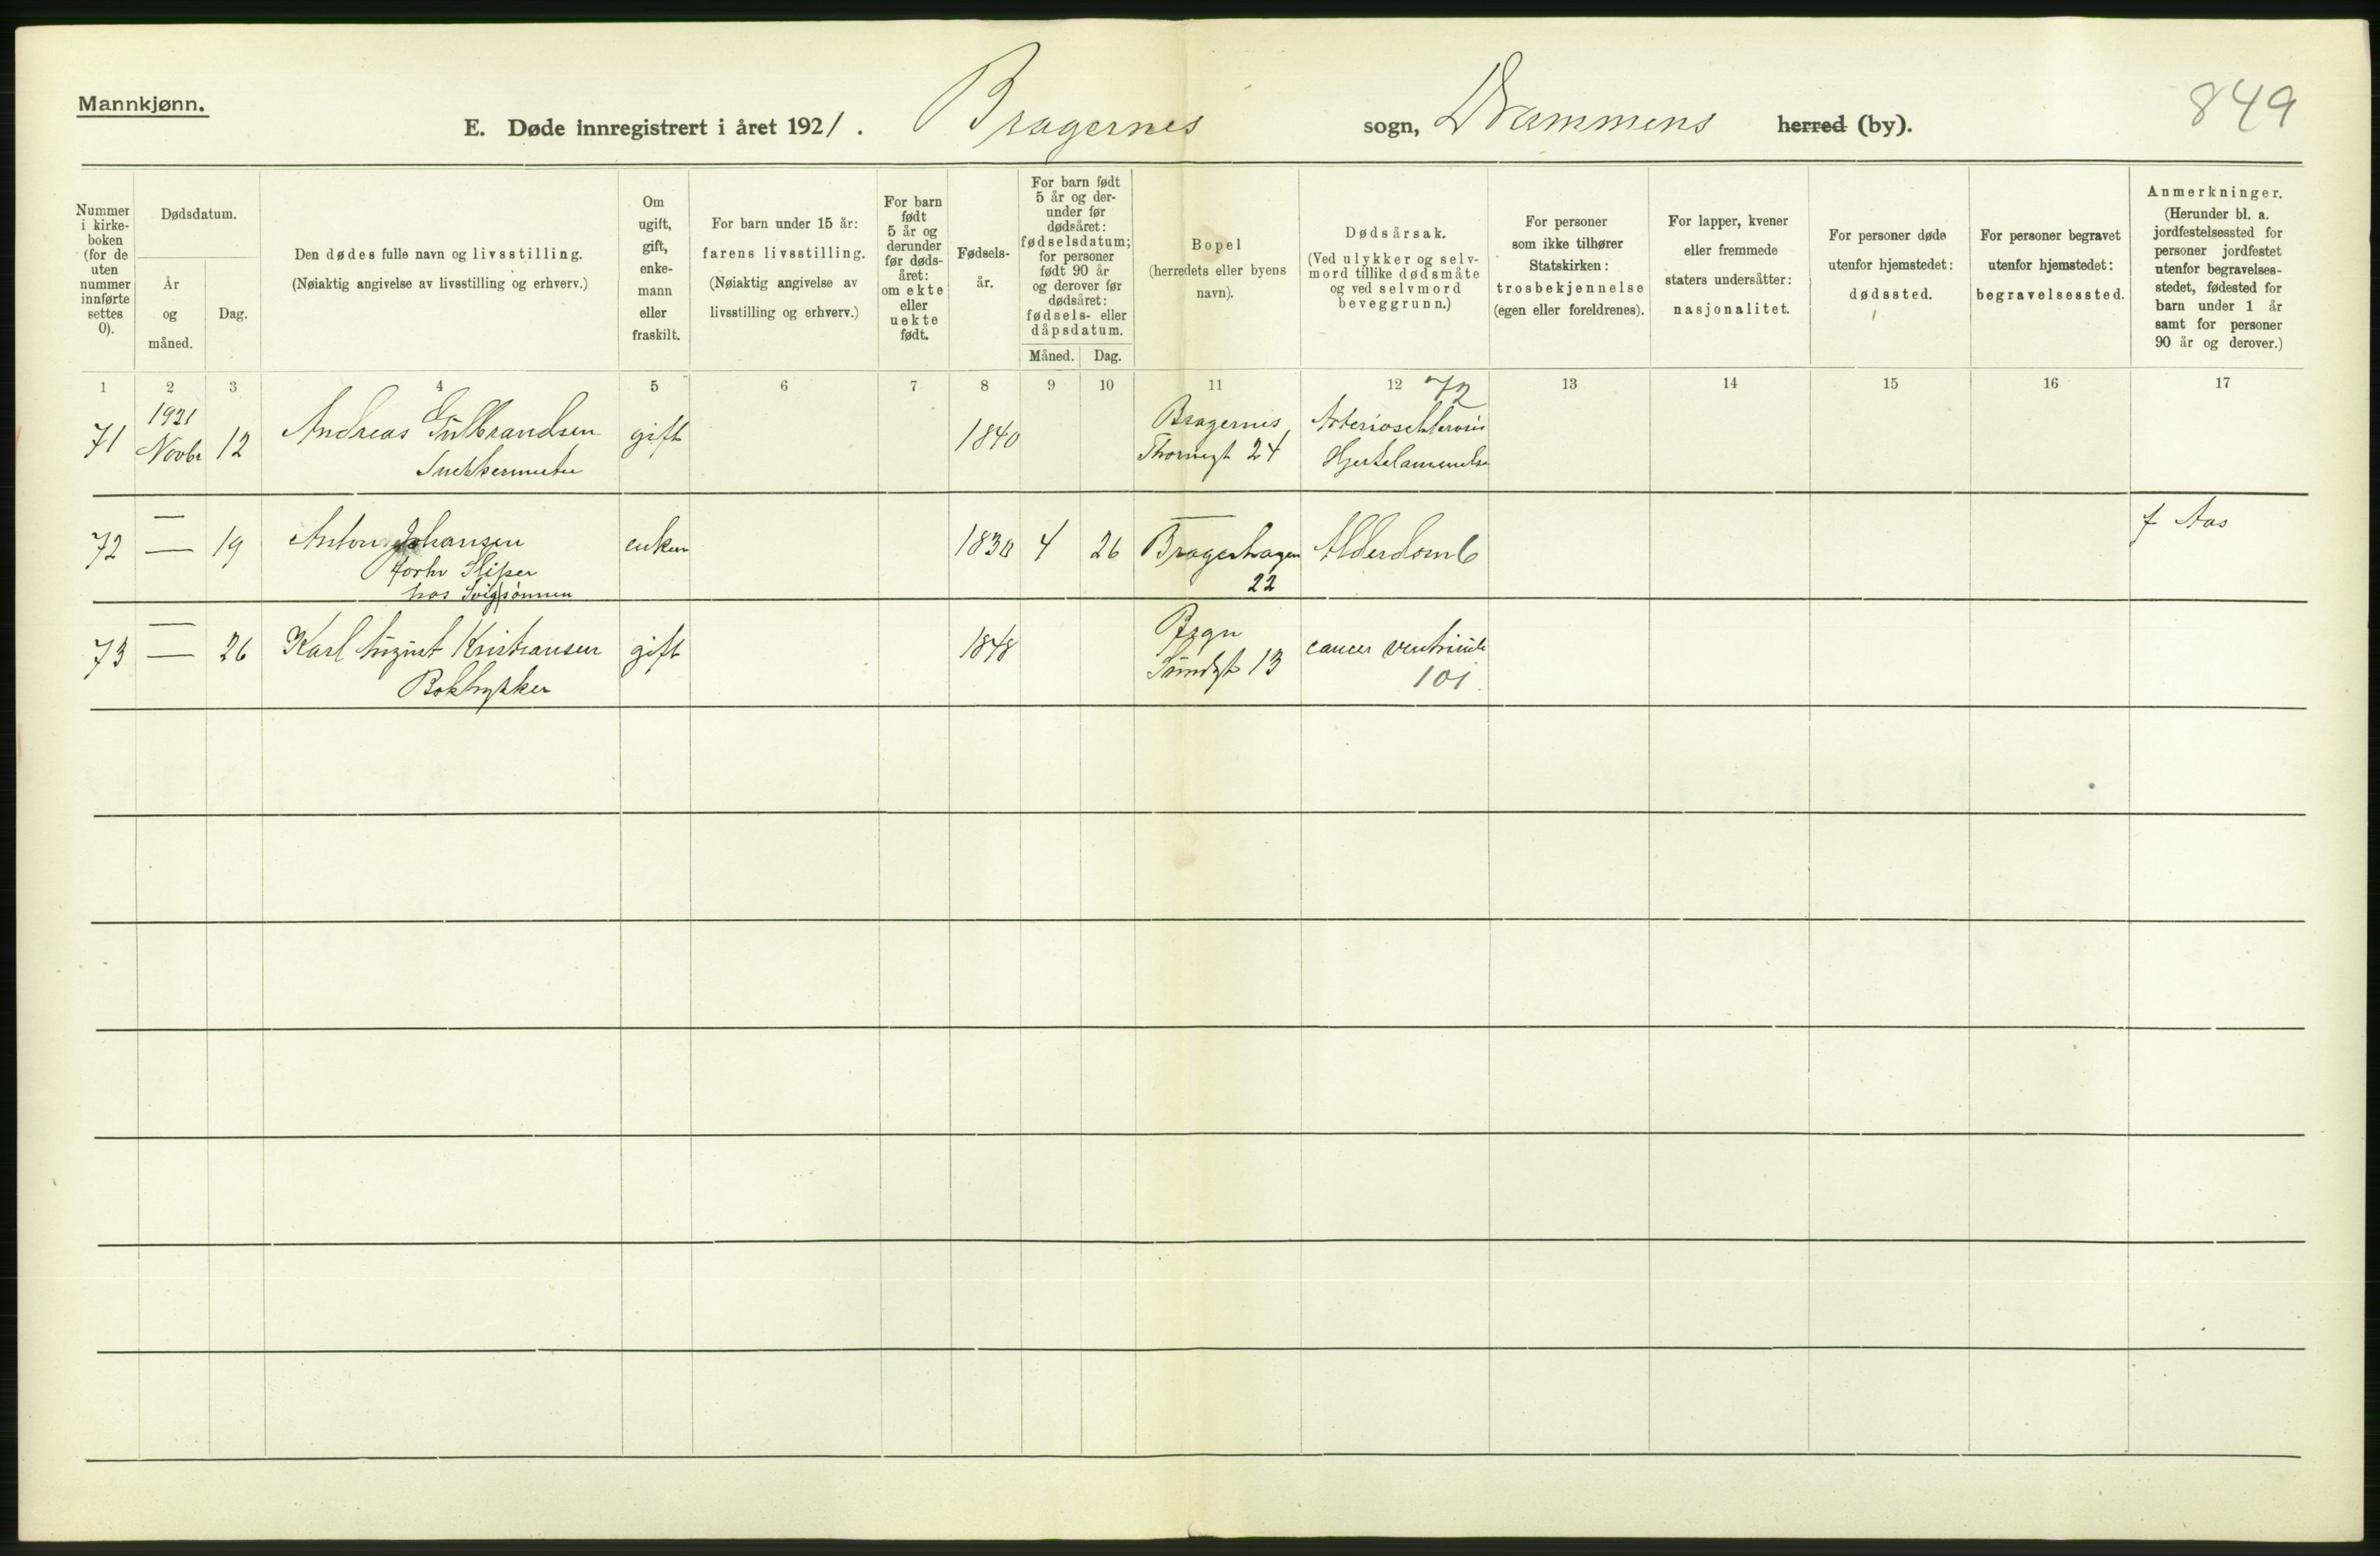 Mannkjønn.
E. Døde innregistrert i året 1921. Bragernes sogn, Drammens herred (by). 849
Nummer i kirke- boken (for de uten nummer innførte settes 0).
Dødsdatum.
År og måned.
Dag.
Den dødes fulle navn og livsstilling.
(Nøiaktig angivelse av livsstilling og erhverv.)
Om ugift, gift, enke- mann eller fraskilt.
For barn under 15 år:
farens livsstilling.
(Nøiaktig angivelse av
livsstilling og erhverv.)
For barn født 5 år og derunder før døds- året: om ekte eller uekte født.
Fødsels- år.
For barn født 5 år og der- under før dødsåret: fødselsdatum; for personer født 90 år og derover før dødsåret: fødsels- eller dåpsdatum.
Måned. Dag.
Bopel
(herredets eller byens
navn).
Dødsårsak.
(Ved ulykker og selv-
mord tillike dødsmåte
og ved selvmord
beveggrunn.)
For personer
som ikke tilhører
Statskirken:
trosbekjennelse
(egen eller foreldrenes).
For lapper, kvener
eller fremmede
staters undersåtter:
nasjonalitet.
For personer døde
utenfor hjemstedet:
dødssted.
For personer begravet
utenfor hjemstedet:
begravelsessted.
Anmerkninger.
(Herunder bl. a.
jordfestelsessted for
personer jordfestet
utenfor begravelses-
stedet, fødested for
barn under 1 år
samt for personer
90 år og derover.)
1 2 3 4 5 6 7 8 9 10 11 12 13 14 15 16 17
72
71 1921 Novbr 12 Andreas Gulbrandsen gift 1840 Bragernes Arteriosclerosis
Thornegt 24 Hjertelammelse
72 — — 19 Anton Johansen enkem 1830 4 26 — Bragerhagen 22 Alderdom 6 f Aas
forhv Sliper
hos Svigsønnen
73 — — 26 Karl August Kristiansen gift 1848 Bragn cancer ventriculi
Boktrykker Sundgt 13 101